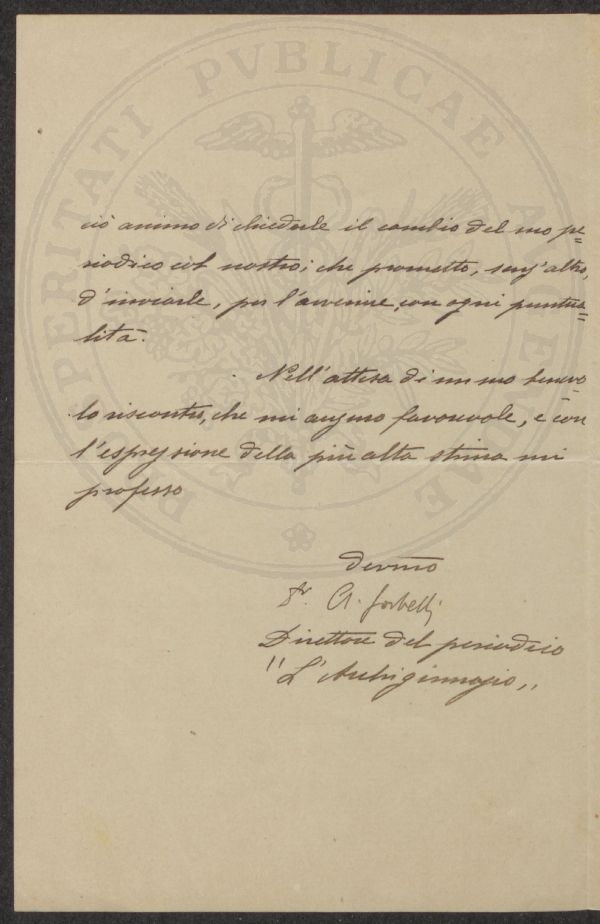 PERITATI PVBLICAE
ciò animo di chiederle il cambio del suo pe=
riodico col nostro; che prometto, senz'altro,
d'inviarle, per l'avvenire, con ogni puntua=
lità.
Nell'attesa di un suo benevo
lo riscontro, che mi auguro favorevole, e con
l'espressione della più alta stima mi
professo
devmo
Dr. A. Sorbelli
Direttore del periodico
"L'Archiginnasio"